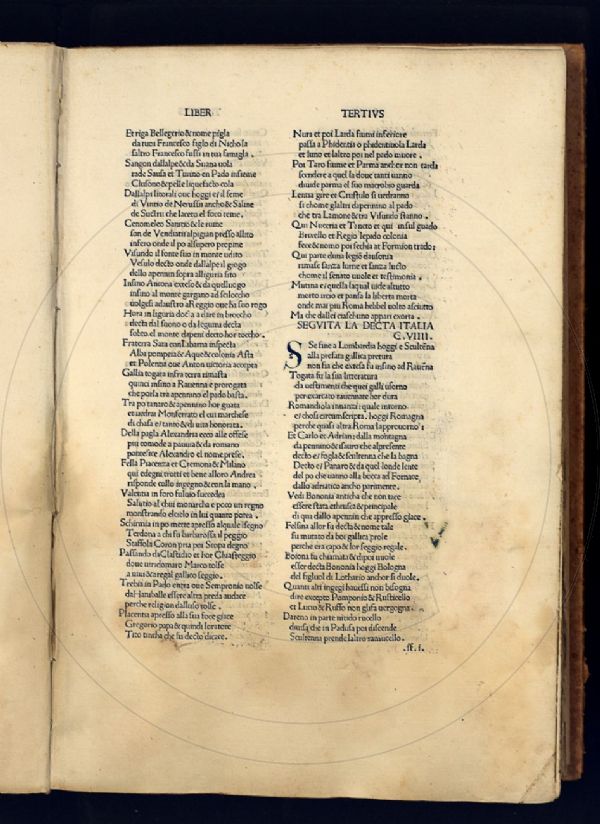 LIBER
TERTIVS
Et riga Bellegerio & nome pigla
da tuea Francesco figlo di Nichola
saltro Francesco fussi in tua famigla.
Sangon dallalpe & da Suana uola
rade Sausa et Turino en Pado insieme
Clusono & pelle liquefacto cola
Dallalpi litorali oue hoggi e il seme
di Vintio de Nerussii ancho & Saline
de Suctri che lareto el foro teme.
Cenomeleo Sanicio & le rume
san de Vendianti alpigian presso allito
infero onde il po alsupero propine
Visundo il fonte suo in monte udito
Vesulo decto onde dallalpe il giogo
dello apennin sopra alliguria sito
Insino Ancona exteso & da quel luogo
insino al monte gargano ad siloccho
uolgesi adaustro a Reggio oue ha suo rogo
Hora in liguria doc a a dare in broccho
decta dal suono o da leguma decta
sotto el monte dapeni decto hor toccho.
Fraterra Sara con labarna inspecta
Alba pompeia & Aque & colonia Asta
et Polenna oue Anton uictoria accepta
Gallia togata infra terra rimasta
quinci insino a Rauenna e prorogata
che porsa tra apennino el pado basta.
Tra po tanaro & apennino hor guata
et uedrai Monferrato el cui marchese
di chasa e santo & di uita honorata.
Della pagla Alexandria ecco alle offese
piu comode a pauuia & da romano
pontefice Alexandro el nome prese.
Fella Piacenza et Cremona & Milano
qui edegni frutti et bene alloro Andrea
risponde collo ingegno & con la mano.
Valentia in foro fuluio succedea
Salutio al chui monarcha e poco un regno
monstrando esselo in lui quanto potea.
Schirmia in po mette apresso alquale segno
Terdona a chi fu barbarossa il peggio
Staffola Coron pria poi Stopa degno
Passando da Clastidio et hor Chiasteggio
doue uiridomaro Marco tolse
a uita & a regal gallico seggio.
Trebia in Pado entra oue Sempronio uolse
da Hanibale essere altra preda audace
perche religion dalluso tolse.
Placentia apresso alla sua foce giace
Gregorio papa & quindi loratore
Tito tincha che fu decto dicace.
Nura et poi Larda fiumi inferiore
passa a Phidentia o phidentiuola Larda
et luno et laltro poi nel pado muore.
Poi Taro fiume et Parma ancher non tarda
scendere a quel la doue tanti uanno
diuide parma el suo marcolfo guarda
Lentia gire et Crustulo si uedranno
si chome glaltri dapennino al pado
che tra Lamone & tra Visundo stanno.
Qui Nuceria et Taneto et qui insul guado
Bruxello et Regio lepido colonia
fece & nome poi sechia at Formion trado:
Qui parte duna legion dausonia
rimase sanza lume et sanza lucto
chome il senato uuole et testimonia.
Mutina e quella laqual uide al tutto
morto irtio et pansa la liberta morta
onde mai piu Roma hebbel uolto asciutto
Ma che dallei ciaschuno appari exorta.
SEGVITA LA DECTA ITALIA
C. VIIII.
SSe fine a Lombardia hoggi e Scultena
alla presata gallica pretura
non sia che extesa fu insino ad Rauena
Togata fu la sua litteratura
da uestimenti che quei galli usorno
per excartato rauennate hor dura
Romandiola innanzi: quale intorno
e chosi circumscripta. hoggi Romagna
perche quasi altra Roma lapprouorno:
Et Carlo et Adriano: dalla montagna
da pennino & isauro che al presente
decto e foglia & scultenna che la bagna
Decto e Panaro & da quel londe lente
del po che uanno alla becca ad Fornace,
dallo adriatico ancho parimente.
Vedi Bononia anticha che non tace
essere stata ethrusca & principale
di qua dallo apennin che appresso giace.
Felsina allor fu decta & nome tale
fu mutato da boi gallica prole
perche era capo & lor seggio regale.
Boiona fu chiamata & dipoi uuole
esser decta Bononia hoggi Bologna
del figluol di Lothario anchor fi duole.
Quanti alti ingegni hauessi non bisogna
dire excepto Pomponio & Rusticello
et Lucio & Ruffo non glisia uergogna.
Dareno in parte nitido rucello
diuisa che in Padusa poi discende
Scultenna prende laltro ramucello.
.ff. i.